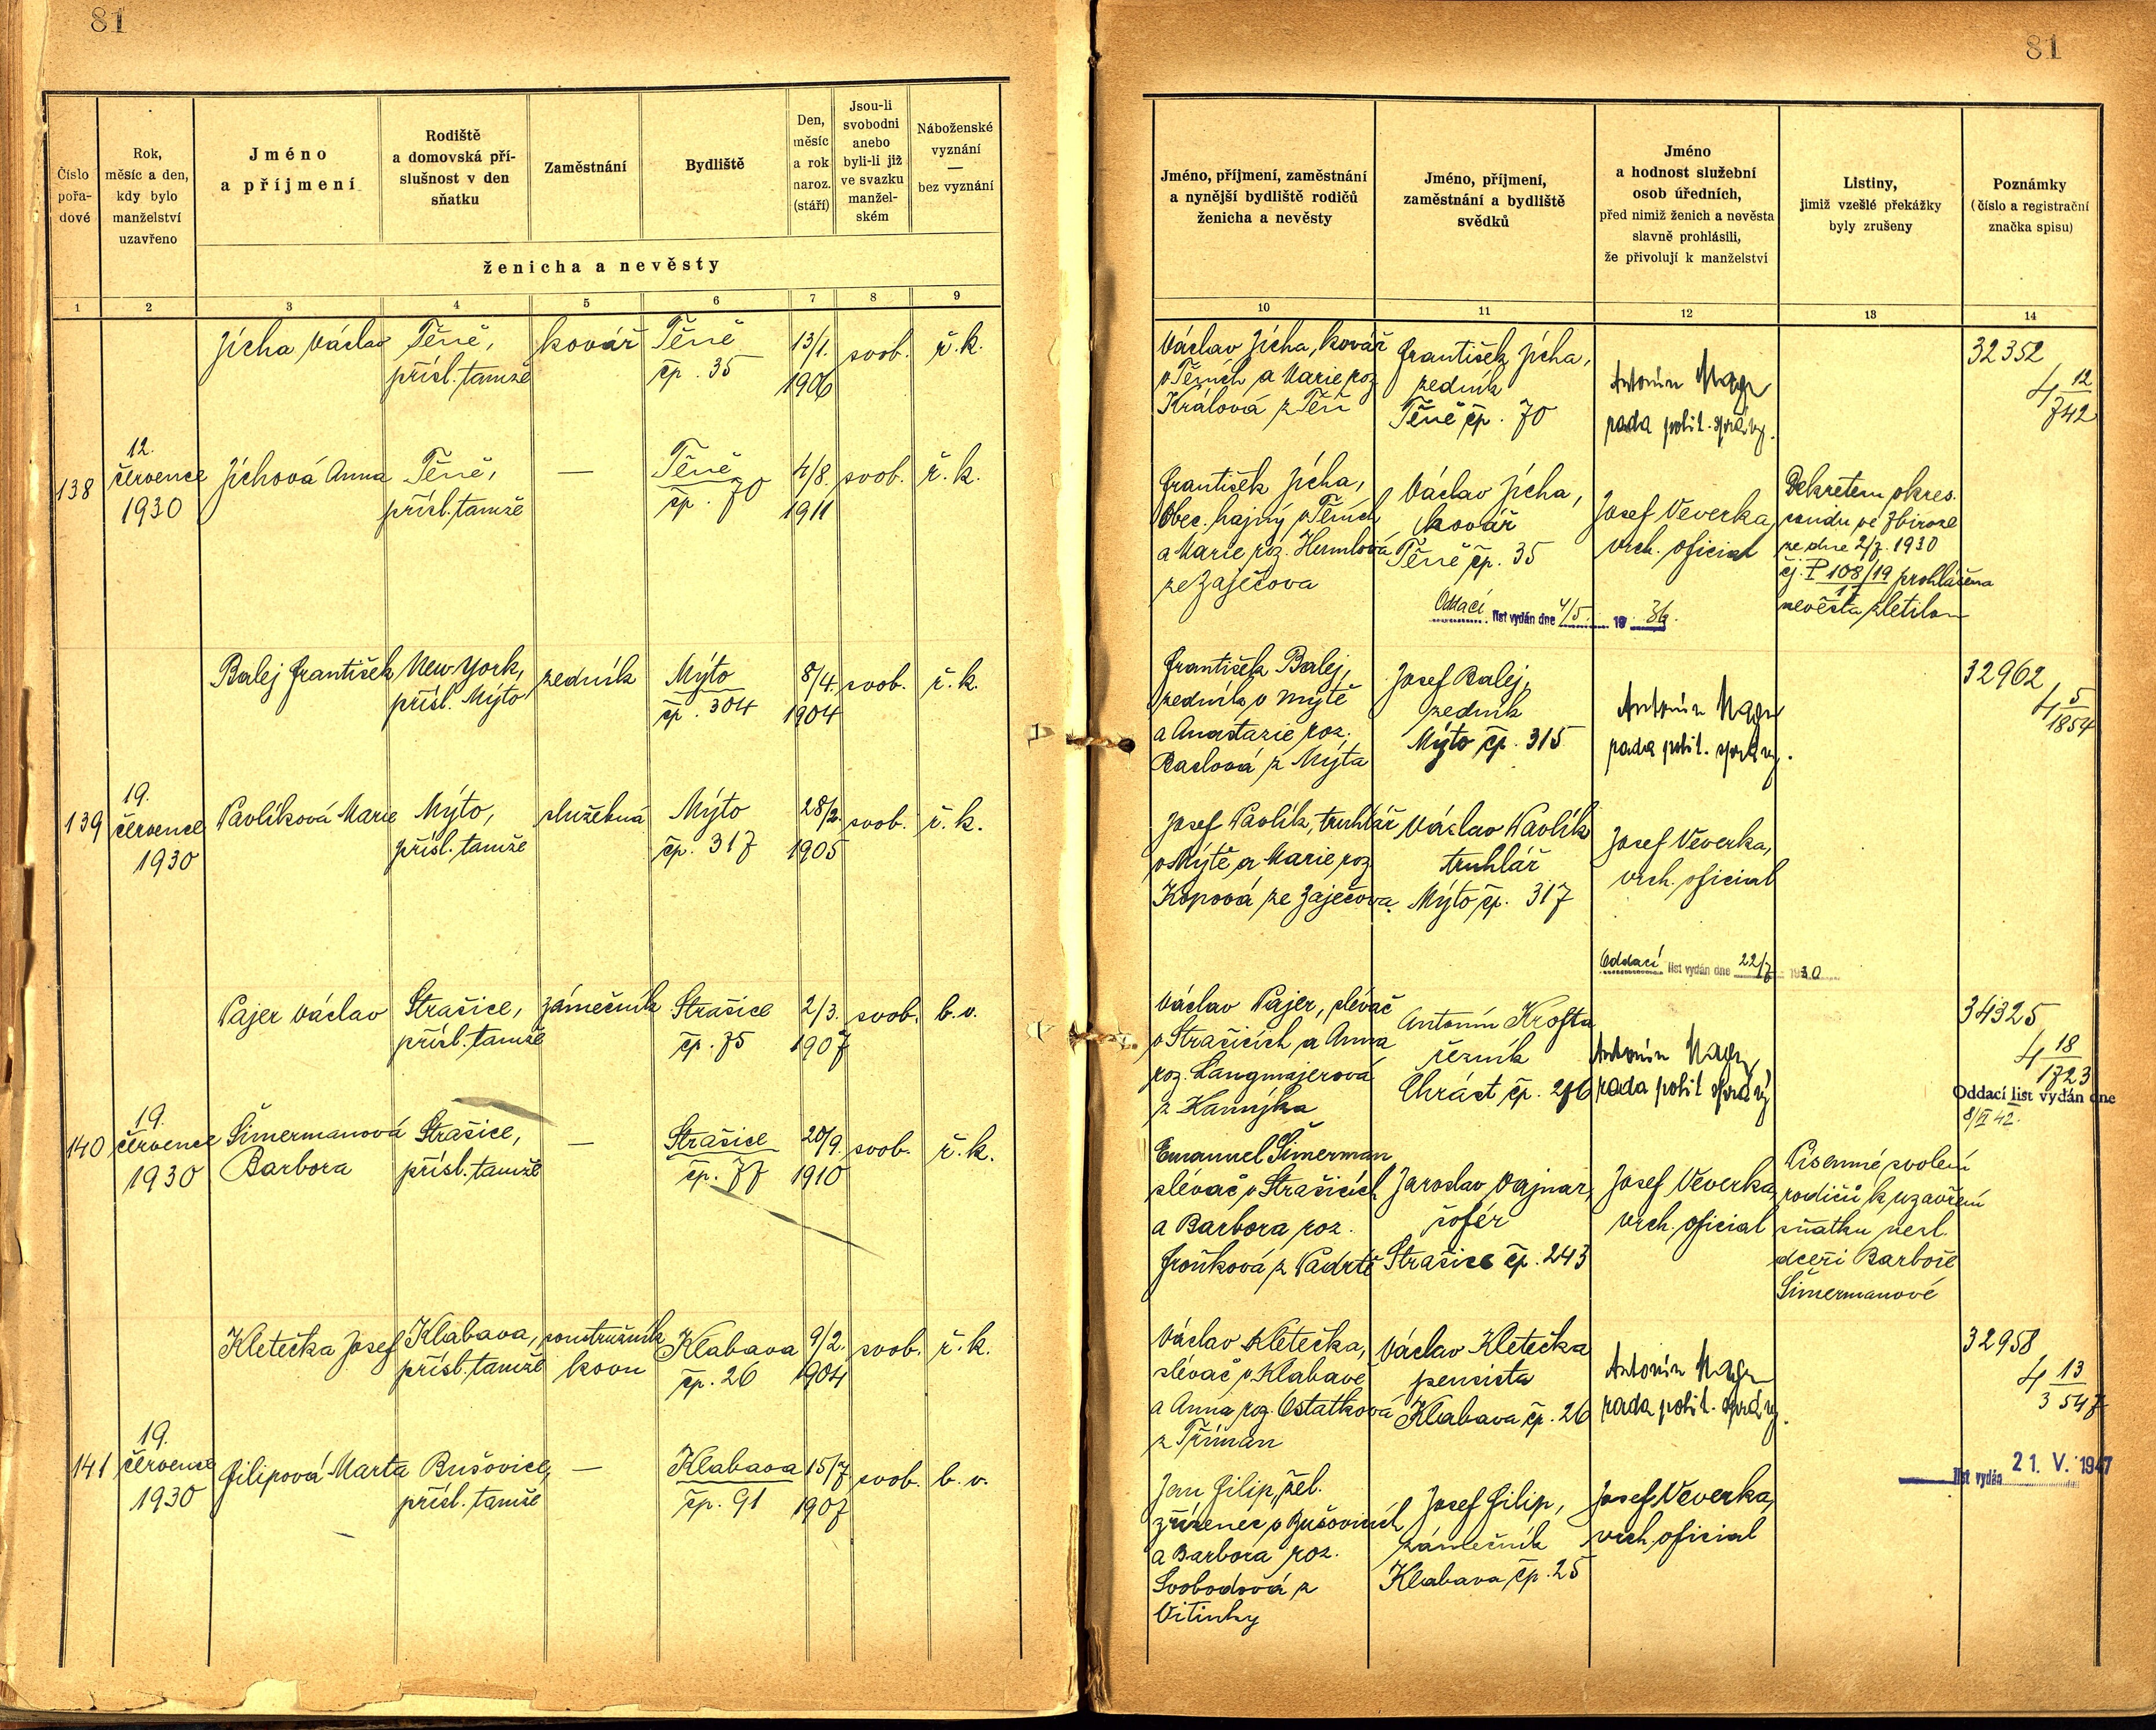 81
Číslo pořa-dové
Rok, měsíc a den, kdy bylo manželství uzavřeno
Jméno a příjmení
Rodiště a domovská pří-slušnost v den sňatku
Zaměstnání
Bydliště
Den, měsíc a rok naroz. (stáří)
Jsou-li svobodni anebo byli-li již ve svazku manžel-ském
Náboženské vyznání — bez vyznání
ženicha a nevěsty
1 2 3 4 5 6 7 8 9
Jícha Václav Těně, kovář Těně 13/1. svob. ř.k.
přísl. tamže čp. 35 1906
12.
138 července Jíchová Anna Těně, — Těně 4/8. svob. ř.k.
1930 přísl. tamže čp. 70 1911
Balej František New-York, zedník Mýto 8/4. svob. ř.k.
přísl. Mýto čp. 304 1904
19.
139 července Pavlíková Marie Mýto, služebná Mýto 28/2. svob. ř.k.
1930 přísl. tamže čp. 317 1905
Pajer Václav Strašice, zámečník Strašice 2/3. svob. b.v.
přísl. tamže čp. 75 1907
19.
140 července Šimermanová Strašice, — Strašice 20/9. svob. ř.k.
1930 Barbora přísl. tamže čp. 77 1910
Kletečka Josef Klabava, soustružník Klabava 9/2. svob. ř.k.
přísl. tamže kovu čp. 26 1904
19.
141 července Filipová Marta Bušovice, — Klabava 15/7 svob. b.v.
1930 přísl. tamže čp. 91 1907
81
Jméno, příjmení, zaměstnání a nynější bydliště rodičů ženicha a nevěsty
Jméno, příjmení, zaměstnání a bydliště svědků
Jméno a hodnost služební osob úředních, před nimiž ženich a nevěsta slavně prohlásili, že přivolují k manželství
Listiny, jimiž vzešlé překážky byly zrušeny
Poznámky (číslo a registrační značka spisu)
10 11 12 13 14
Václav Jícha, kovář
v Těních a Marie roz.
Králová z Těň
František Jícha,
zedník
Těně čp. 70
Antonín
rada polit. správy.
32352
4 12/742
František Jícha,
obec. hajný v Těních
a Marie roz. Humlová
ze Zaječova
Václav Jícha,
kovář
Těně čp. 35
Josef Veverka,
vrch. oficial
Dekretem okres.
soudu ve Zbiroze
ze dne 2/7. 1930
čj. P 108/19 prohlášena
17
nevěsta zletilou
Oddací list vydán dne 4/5. 19 36.
František Balej,
zedník v Mýtě
a Anastazie roz.
z Mýta
Josef Balej,
zedník
Mýto čp. 315
Antonín
rada polit. správy.
32962
4 5/1854
Josef Pavlík, truhlář
v Mýtě a Marie roz.
Kopová ze Zaječova.
Václav Pavlík
truhlář
Mýto čp. 317
Josef Veverka,
vrch. oficial
Oddací list vydán dne 22/7 1930
Václav Pajer, slévač
v Strašicích a Anna
roz. Langmajerová
z Kamýka
Antonín Krofta
řezník
Chrást čp. 206
Antonín
rada polit. správy
34325
4 18/1723
Oddací list vydán dne
Emanuel Šimerman
slévač v Strašicích
a Barbora roz.
Froňková z Padrtě
Jaroslav Vajnar,
šofér
Strašice čp. 243
Josef Veverka,
vrch. oficial
Písemné svolení
rodičů k uzavření
sňatku nezl.
dceři Barboře
Šimermanové
Václav Kletečka,
slévač v Klabavě
a Anna roz. Ostatková
z Tříman
Václav Kletečka
pensista
Klabava čp. 26
Antonín
rada polit. správy.
32958
4 13/3547
list vydán 21. V. 1947
Jan Filip, žel.
zřízenec v Bušovicích
a Barbora roz.
Svobodová z
Vitinky
Josef Filip,
zámečník
Klabava čp. 25
Josef Veverka,
vrch. oficial